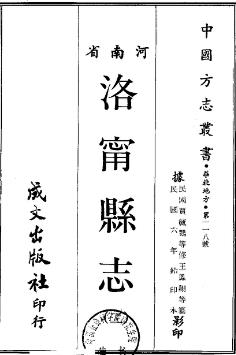 中國方志叢書·華北地方·第一一八號
據民國賈毓鶚等修王鳳翔等纂
民國六年鉛印本影印
河南省
洛甯縣志
成文出版社印行